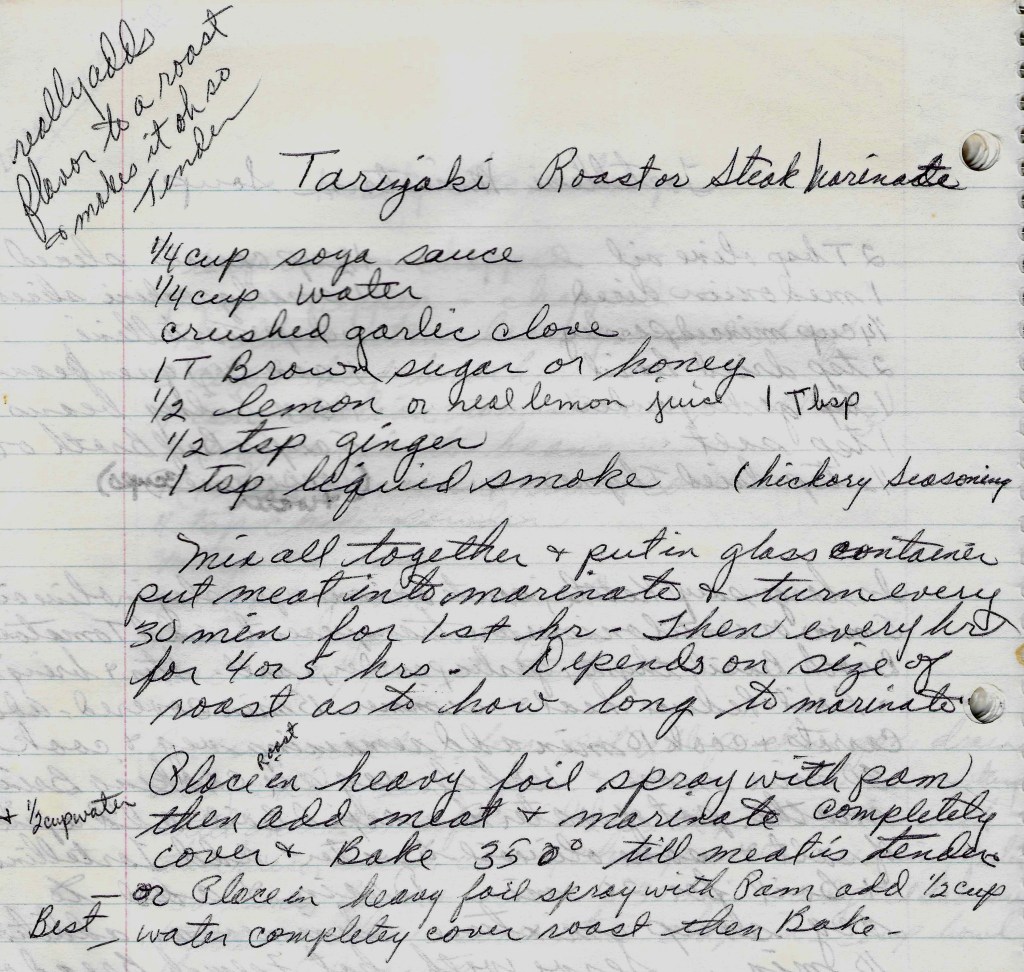 really adds
flavor to a roast
& makes it oh so
Tender
Tariyaki Roast or Steak Marinate
1/4 cup soya sauce
1/4 cup water
crushed garlic clove
1 T Brown sugar or honey
1/2 lemon or real lemon juice 1 Tbsp
1/2 tsp ginger
1 tsp liquid smoke (hickory seasoning
Mix all together & put in glass container
put meat into marinate & turn every
30 min for 1st hr - Then every hr
for 4 or 5 hrs - Depends on size of
roast as to how long to marinate
Place Roast in heavy foil spray with pam
+ 1/2 cup water then add meat & marinate completely
cover & Bake 350° till meat is tender
- or Place in heavy foil spray with Pam add 1/2 cup
Best - water completey cover roast then Bake -